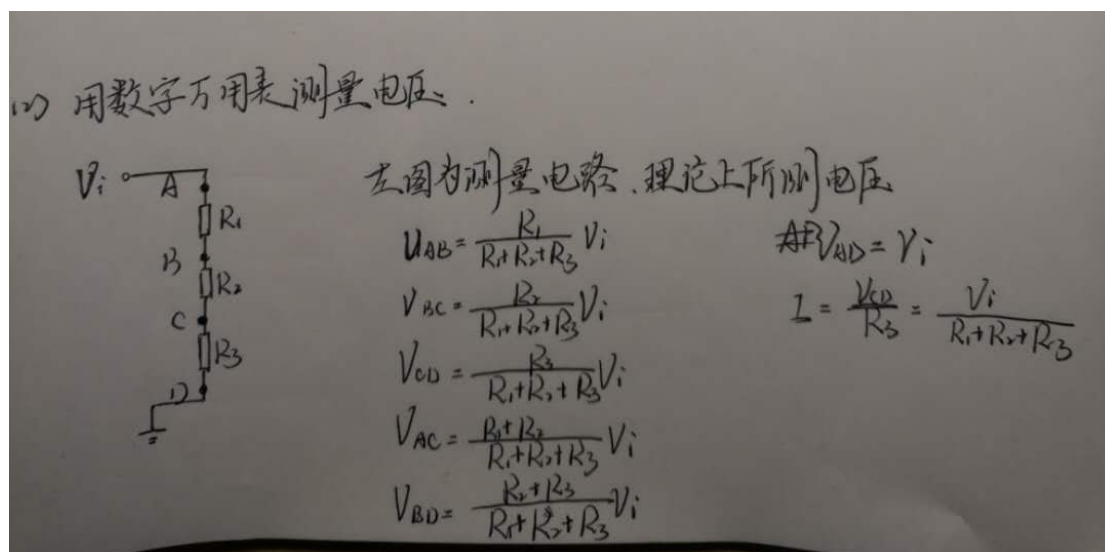 (2) 用数字万用表测量电压.
Vi
A
R1
B
R2
C
R3
D
左图为测量电路.理论上所测电压
UAB = R1/(R1+R2+R3) Vi
VBC = R2/(R1+R2+R3) Vi
VCD = R3/(R1+R2+R3) Vi
VAC = (R1+R2)/(R1+R2+R3) Vi
VBD = (R2+R3)/(R1+R2+R3) Vi
VAD = Vi
I = VCD/R3 = Vi/(R1+R2+R3)